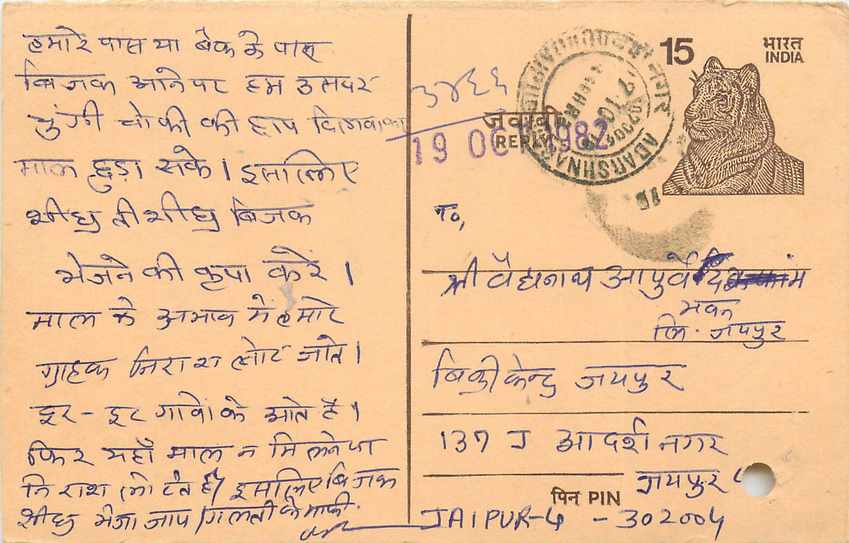 हमारे पास या बैंक के पास
बिजक आने पर हम उसपर
चुंगी चोकी की छाप दिलवाकर
माल छुड़ा सके। इसलिए
शीघ्र ती शीघ्र बिजक
भेजने की कृपा करें।
माल के अभाव में हमारे
ग्राहक निराश लोट जाते।
दूर-दूर गावो के आते है।
फिर यहाँ माल न मिलने पर
निराश लोटते है। इसलिए बिजक
शीघ्र भेजा जाय। गलती के माफी.
3466
जवाबी
REPLY
19 OCT 1982
ADARSHNAGAR
नगर
15
भारत
INDIA
To,
श्री वैद्यनाथ आयुर्वेद
भवन
लि. जयपुर
बिक्री केन्द्र जयपुर
137 J आदर्श नगर
जयपुर
पिन PIN
JAIPUR-4 - 302004